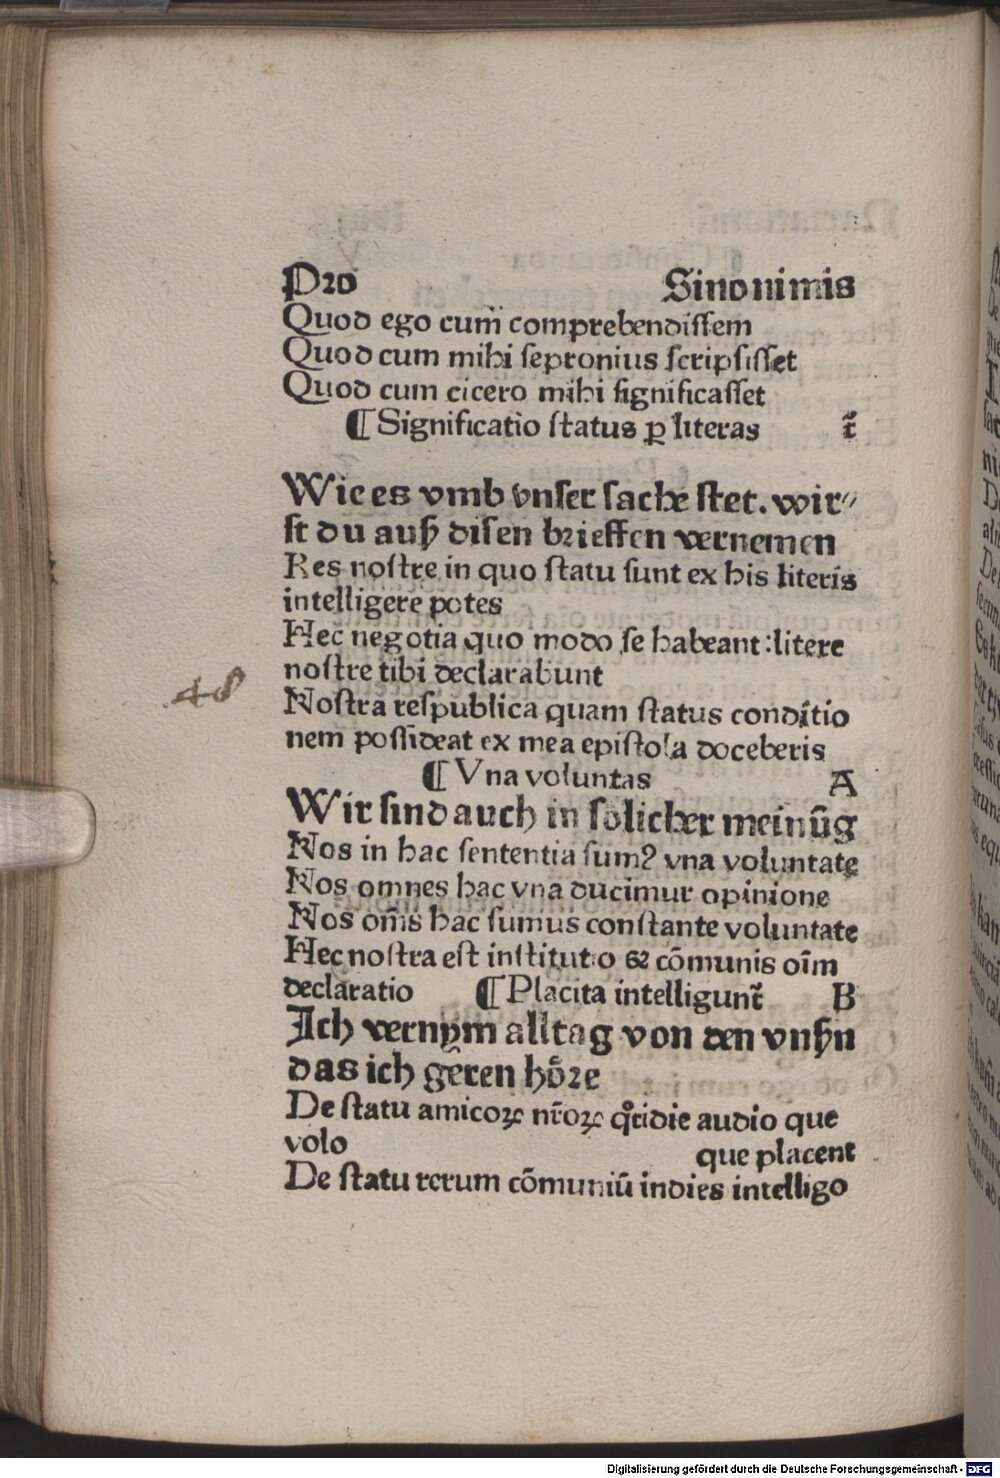 Pro Sinonimis
Quod ego cum̄ comprehendissem
Quod cum mihi sepronius scripsisset
Quod cum cicero mihi significasset
¶ Significatio status ꝑ literas t̄
Wie es vmb vnser sache stet. wir⸗
st du auß disen brieffen vernemen
Res nostre in quo statu sunt ex his literis
intelligere potes
Hec negotia quo modo se habeant: litere
nostre tibi declarabunt
48
Nostra respublica quam status conditio
nem possideat ex mea epistola doceberis
¶ Vna voluntas A
Wir sind auch in solicher meinūg
Nos in hac sententia sumꝰ vna voluntate
Nos omnes hac vna ducimur opinione
Nos om̄s hac sumus constante voluntate
Hec nostra est institutio ⁊ cōmunis oīm
declaratio ¶ Placita intelligunt̄ B
Ich vernym alltag von den vnßn
das ich geren hoͤre
De statu amicoꝝ nr̄oꝝ qͦtidie audio que
volo que placent
De statu rerum cōmuniū indies intelligo
Digitalisierung gefördert durch die Deutsche Forschungsgemeinschaft - DFG